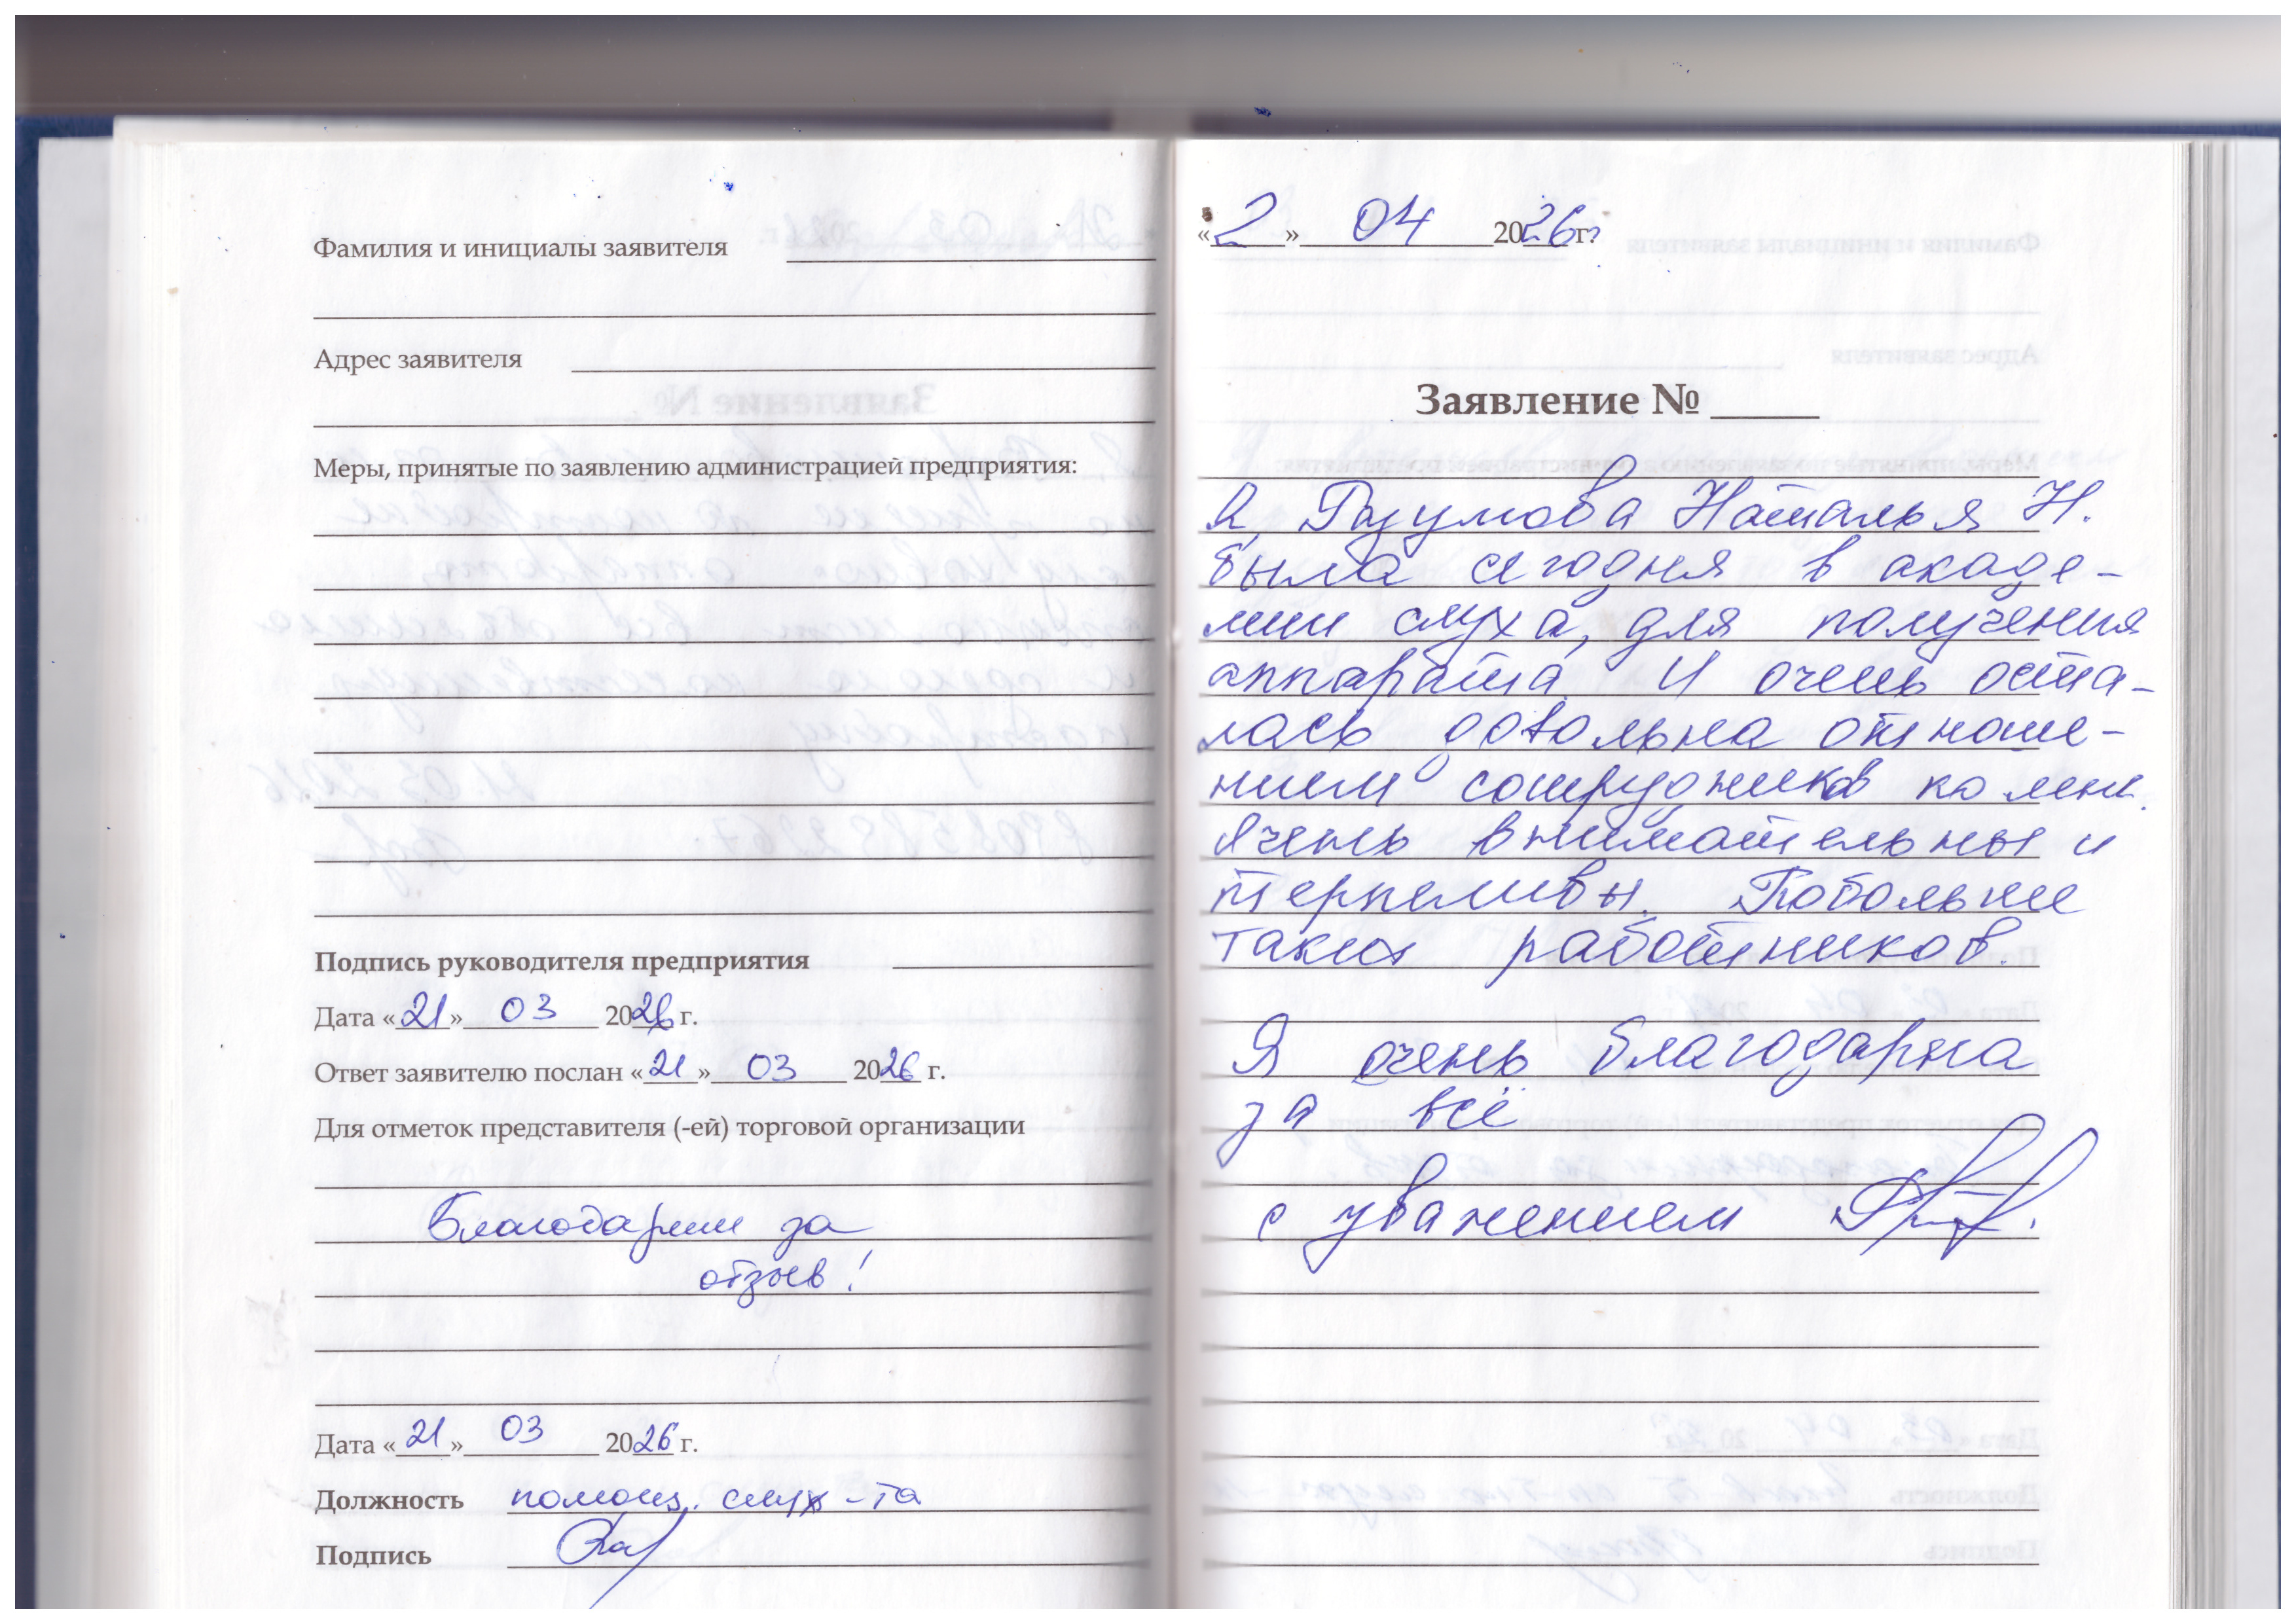 Фамилия и инициалы заявителя
Адрес заявителя
Меры, принятые по заявлению администрацией предприятия:
Подпись руководителя предприятия
Дата «21» 03 2026 г.
Ответ заявителю послан «21» 03 2026 г.
Для отметок представителя (-ей) торговой организации
Благодарим за
отзыв!
Дата «21» 03 2026 г.
Должность помощ. слух-та
Подпись
«2» 04 2026 г.
Заявление №
Я, Разумова Наталья Н.
была сегодня в акаде-
мии слуха, для получения
аппарата. И очень оста-
лась довольна отноше-
нием сотрудников ко мне.
Очень внимательны и
терпеливы. Побольше
таких работников.
Я очень благодарна
за всё
с уважением